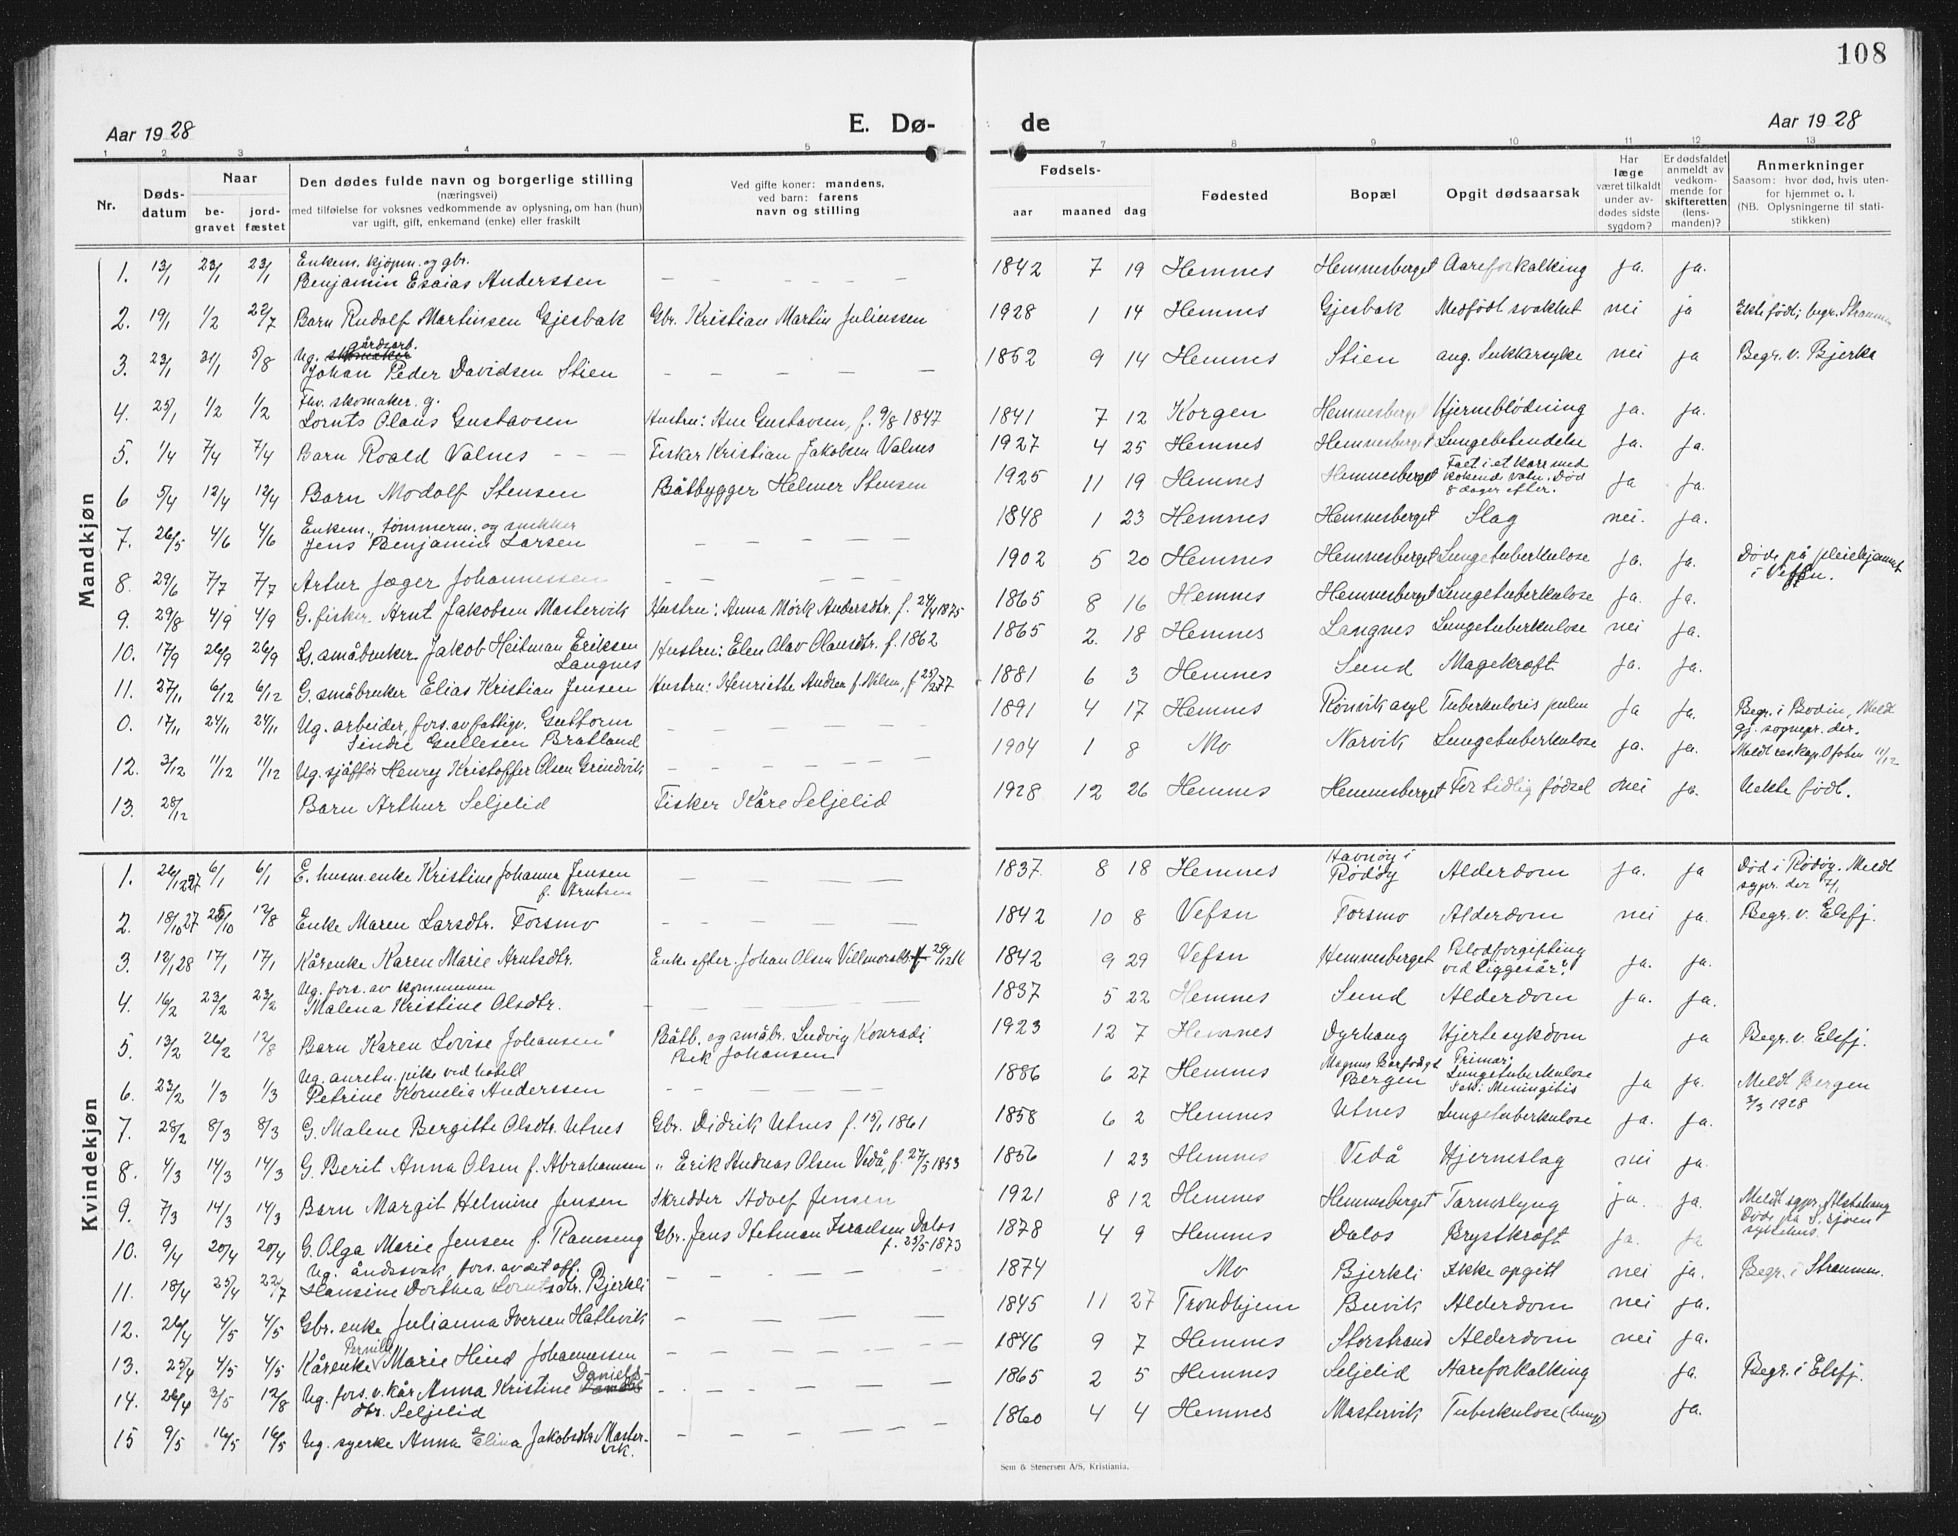 108
Aar 1928
E. Dø-
de
Aar 1928
1 2 3 4 5 7 8 9 10 11 12 13
Nr.
Døds-
datum
Naar
be-
gravet
jord-
fæstet
Den dødes fulde navn og borgerlige stilling
(næringsvei)
med tilføielse for voksnes vedkommende av oplysning, om han (hun)
var ugift, gift, enkemand (enke) eller fraskilt
Ved gifte koner: mandens,
ved barn: farens
navn og stilling
Fødsels-
aar maaned dag
Fødested
Bopæl
Opgit dødsaarsak
Har
læge
været tilkaldt
under av-
dødes sidste
sygdom?
Er dødsfaldet
anmeldt av
vedkom-
mende for
skifteretten
(lens-
manden)?
Anmerkninger
Saasom: hvor død, hvis uten-
for hjemmet o. l.
(NB. Oplysningerne til stati-
stikken)
Mandkjøn
1. 13/1 23/1 23/1 Enkem. kjøpm. og gbr.
Benjamin Esaias Anderssen — — — — 1842 7 19 Hemnes Hemnesberget Aareforkalking ja. ja.
2. 19/1 1/2 22/7 Barn Rudolf Martinsen Gjesbak Gbr. Kristian Martin Juliussen 1928 1 14 Hemnes Gjesbak Medfødt svakhet nei ja Ekte født; begr. Straumen
3. 23/1 31/1 5/8 Ug. skomaker gårdsarb.
Johan Peder Davidsen Stien — — — — 1852 9 14 Hemnes Stien ang. Sukkersyke nei ja Begr. v. Bjerka
4. 25/1 1/2 1/2 Fhv. skomaker. g.
Lornts Olaus Gustavsen Hustru: Ane Gustavsen, f. 9/8 1847 1841 7 12 Korgen Hemnesberget Hjerneblödning ja. ja.
5. 1/4 7/4 7/4 Barn Roald Valnes — — — Fisker Kristian Jakobsen Valnes 1927 4 25 Hemnes Hemnesberget Lungebetendelse ja. ja.
6 5/4 12/4 12/4 Barn Modolf Stensen Båtbygger Helmer Stensen 1925 11 19 Hemnes Hemnesberget Falt i et kar med
kokende vatn. Död
8 dager efter. ja ja.
7. 26/5 4/6 4/6 Enkem., tømmerm. og snekker
Jens Benjamin Larsen — — — — 1848 1 23 Hemnes Hemnesberget Slag nei. ja.
8. 29/6 7/7 7/7 Artur Jæger Johannessen — — — — 1902 5 20 Hemnes Hemnesberget Lungetuberkulose ja. ja. Døde på pleiehjemmet
i Vefsn.
9. 29/8 4/9 4/9 G. fisker Arnt Jakobsen Mastervik Hustru: Anna Mørk Andersdtr. f. 24/4 1875 1865 8 16 Hemnes Hemnesberget Lungetuberkulose ja. ja.
10. 17/9 26/9 26/9 G. småbruker Jakob Heitman Eriksen
Langnes Hustru: Elen Olav Olausdtr. f. 1862 1865 2. 18 Hemnes Langnes Lungetuberkulose nei ja.
11. 27/11 6/12 6/12 G. småbruker Elias Kristian Jensen Hustru: Henriette Andrea f. Nilsen, f. 25/2 77 1881 6 3 Hemnes Sund Magekræft ja. ja.
0. 17/11 24/11 24/11 Ug. arbeider, fors. av fattigv. Guttorm
Sindre Gullesen Bratland — — — — 1891 4 17 Hemnes Rönvik asyl Tuberkulosis pulm ja ja. Begr. i Bodin, Meldt
gj. sognepr. der.
12. 3/12 11/12 11/12 Ug. sjåffør Henry Kristoffer Olsen Grindvik — — — — 1904 1 8 Mo Narvik Lungetuberkulose ja. ja. Meldt reskap. Ofoten 11/12
13. 28/12 Barn Arthur Seljelid Fisker Kåre Seljelid 1928 12 26 Hemnes Hemnesberget For tidlig födsel nei ja. Uekte födt.
Kvindekjøn
1. 26/12 27 6/1 6/1 E. husm. enke Kristine Johanna Jensen
f. Arntsen — — — — 1837 8 18 Hemnes Havnöy i
Rödöy Alderdom ja. ja Död i Rödöy. Meldt
sgpr. der 7/1
2. 18/10 27 25/10 12/8 Enke Maren Larsdtr. Forsmo — — — — 1842 10 8 Vefsn Forsmo Alderdom nei ja. Begr. v. Elsfj.
3. 12/1 28 17/1 17/1 Kårenke Karen Marie Arntsdtr. Enke efter Johan Olsen 29/12 16 1842 9 29 Vefsn Hemnesberget Blodforgiftning
ved liggesår. ja. ja.
4. 16/2 23/2 23/2 Ug. fors. av kommunen
Malena Kristine Olsdtr. — — — — 1837 5 22 Hemnes Sund Alderdom ja. ja.
5. 13/2 26/2 12/8 Barn Karen Lovise Johansen Båtb. og småbr. Ludvig Konradi
Bek Johansen 1923 12 7 Hemnes Dyrhaug Hjertesykdom ja Begr. v. Elsfj.
6. 23/2 1/3 1/3 Ug. anretn. pike ved hotell
Petrine Kornelia Anderssen — — — — 1886 6 27 Hemnes Magnus Barfodsgt
Bergen Primær:
Lungetuberkulose
Sek: Meningitis ja ja. Meldt Bergen
3/3 1928
7. 28/2 8/3 8/3 G. Malene Bergitte Olsdtr. Utnes Gbr. Didrik Utnes f. 15/1 1861 1858 6 2 Hemnes Utnes Lungetuberkulose ja. ja.
8. 4/3 14/3 14/3 G. Berit Anna Olsen f. Abrahamsen " Erik Andreas Olsen Vedå, f. 27/5 1853 1856 1 23 Hemnes Vedå Hjerneslag nei ja.
9. 7/3 14/3 14/3 Barn Margit Helmine Jensen Skredder Adolf Jensen 1921 8 12 Hemnes Hemnesberget Tarmslyng ja. ja. Meldt sgpr. Alstahaug
Döde på S. sjøen
sykehus.
10. 9/4 20/4 20/4 G. Olga Marie Jensen f. Ranseng Gbr. Jens Hetman Israelsen Dalos
f. 25/5 1873 1878 4 9 Hemnes Dalos Brystkræft ja. ja
11. 18/4 25/4 22/7 Ug. åndssvak, fors. av det off.
Hansine Dorthea Lorntsdtr. Bjerkli — — — — 1874 Mo Bjerkli Ikke opgitt nei ja. Begr. i Straumen.
12. 26/4 4/5 4/5 Gbr. enke Julianna Iversen Hattevik — — — — 1845 11 27 Trondhjem Buvik Alderdom nei ja.
13. 25/4 4/5 4/5 Kårenke Pernille Marie Hind Johannessen — — — — 1846 9 7 Hemnes Storstrand Alderdom nei ja.
14. 26/4 3/5 12/8 Ug. fors. v. kår Anna Kristine Daniels-
dtr. Seljelid — — — — 1865 2 5 Hemnes Seljelid Aareforkalking ja. Begr. i Elsfj.
15 9/5 16/5 16/5 Ug. syerke Anna Elina Jakobsdtr. Master-
vik. — — — — 1860 4 4 Hemnes Mastervik Tuberkulose (lunge) ja.
Sem & Stenersen A/S, Kristiania.